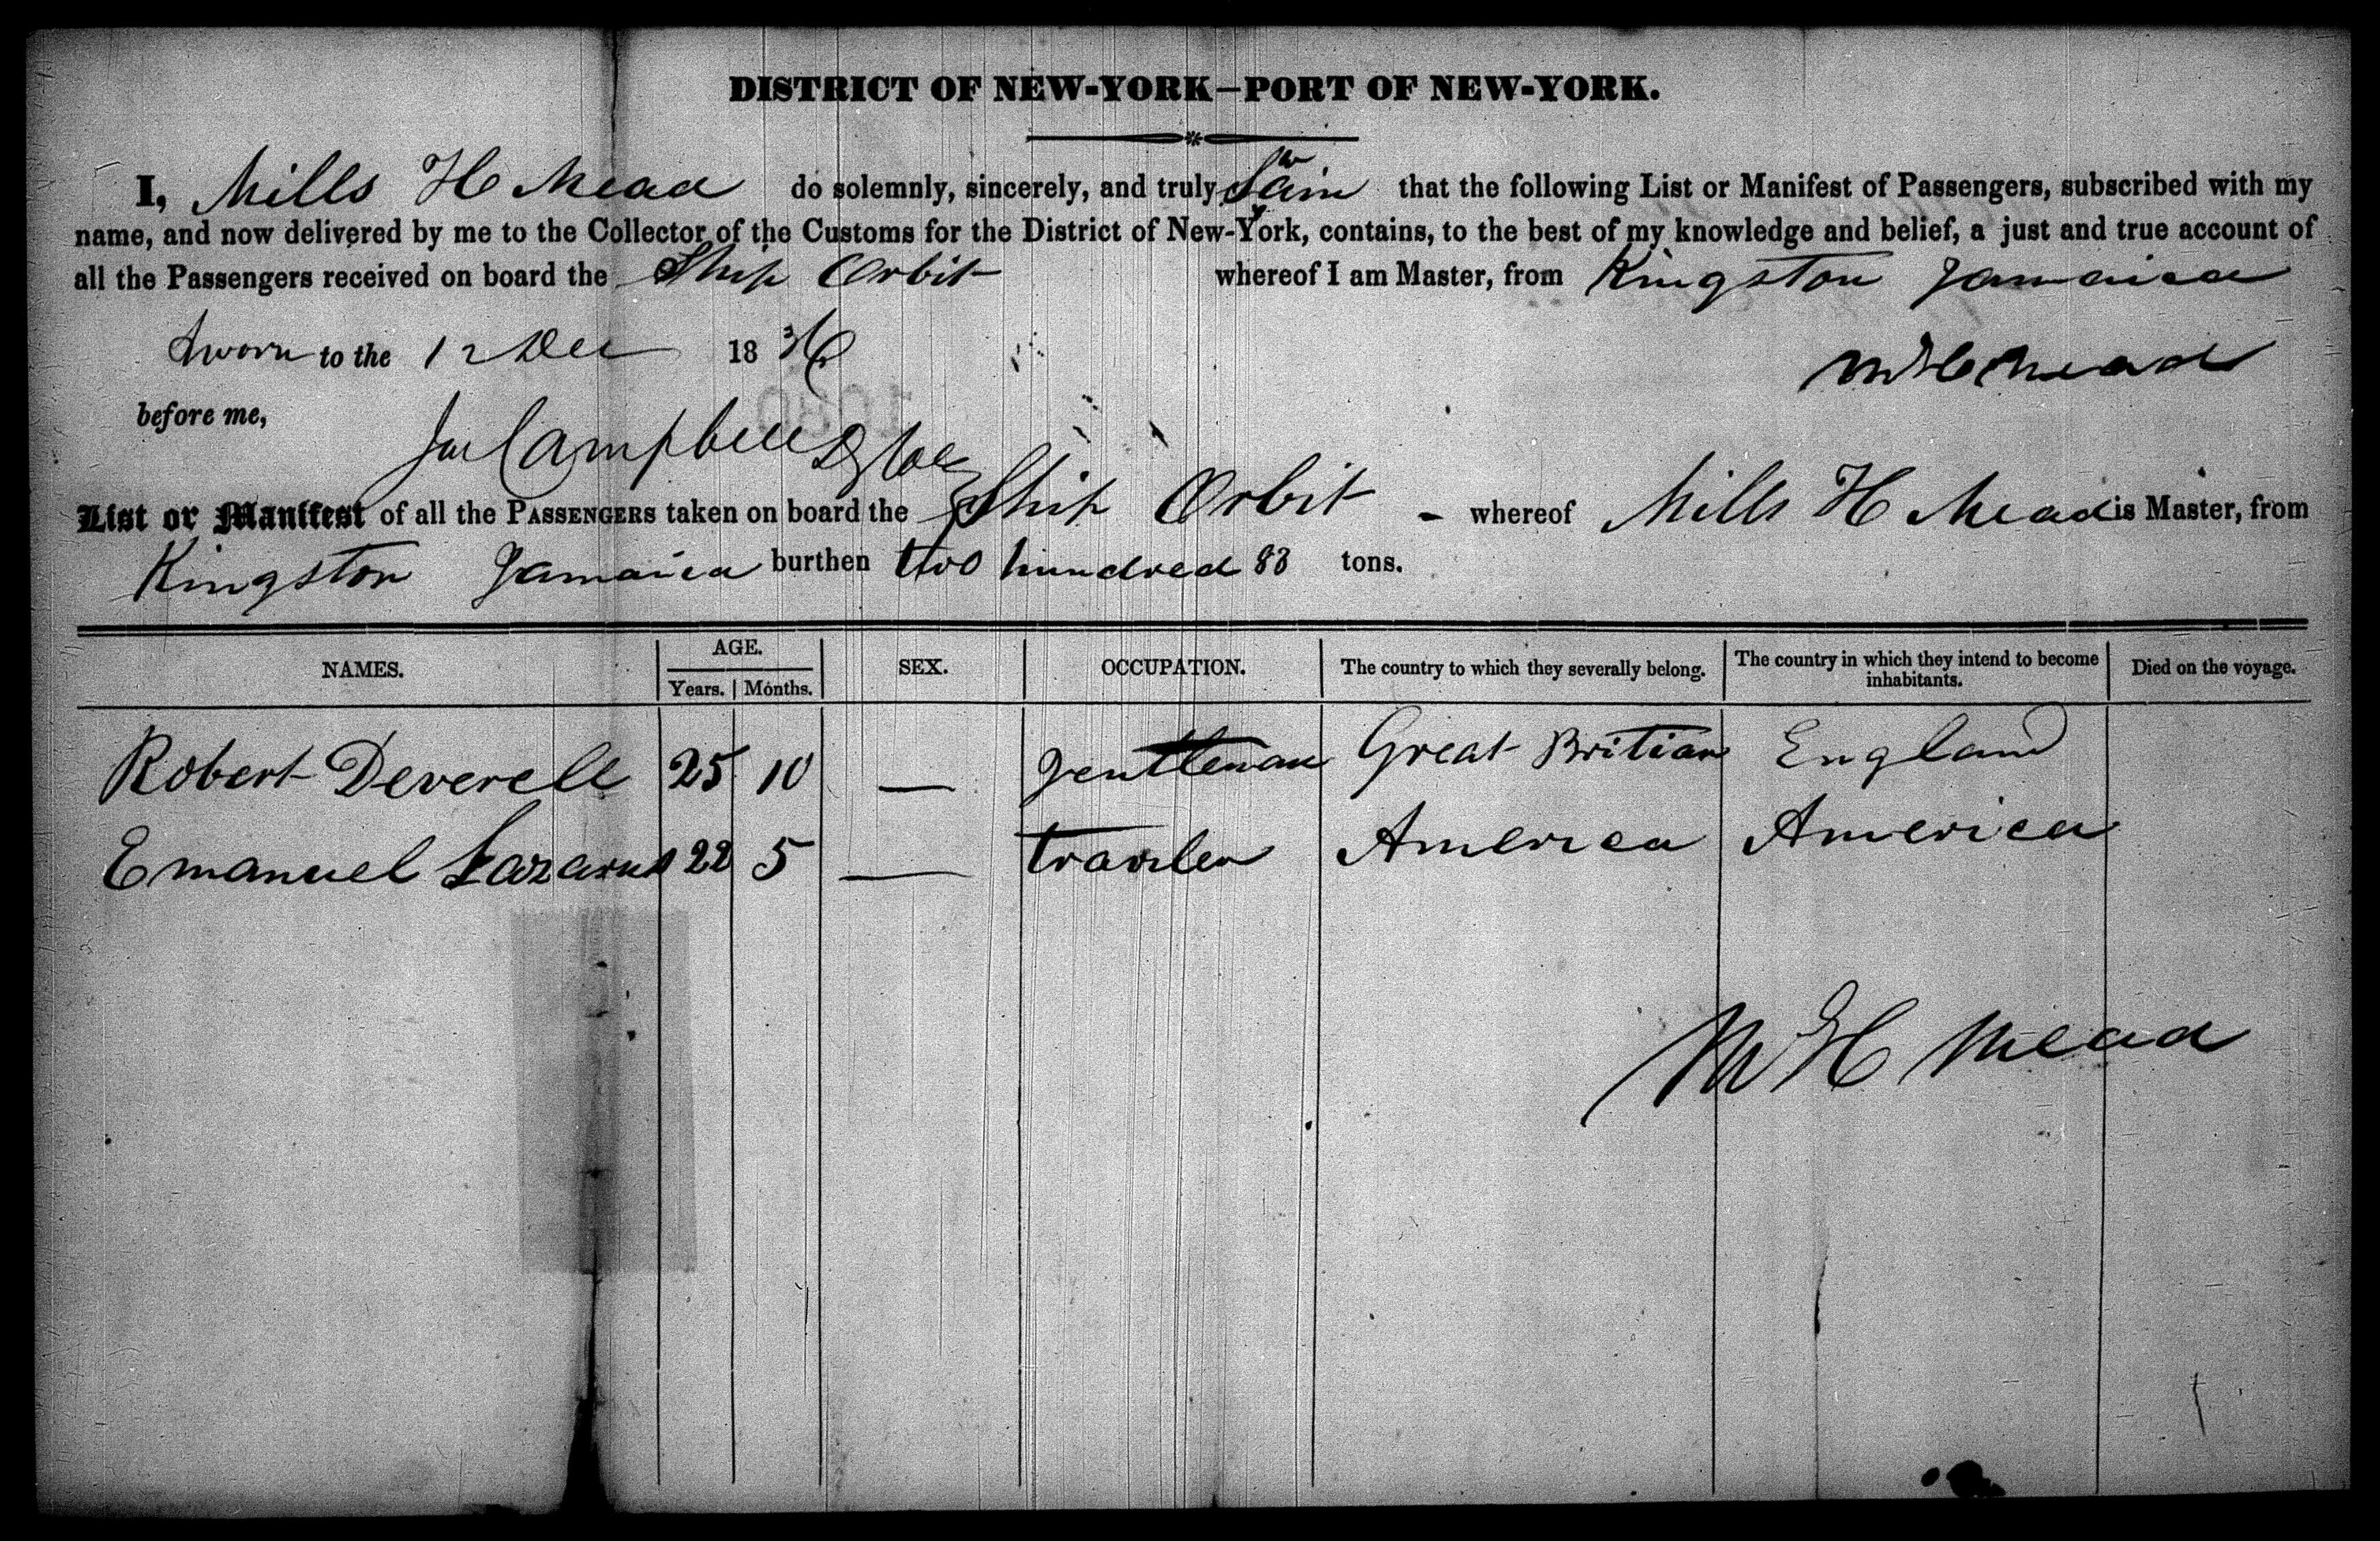 DISTRICT OF NEW-YORK—PORT OF NEW-YORK.
I, Mills H Mead do solemnly, sincerely, and truly that the following List or Manifest of Passengers, subscribed with my
name, and now delivered by me to the Collector of the Customs for the District of New-York, contains, to the best of my knowledge and belief, a just and true account of
all the Passengers received on board the Ship Orbit whereof I am Master, from Kingston Jamaica
Sworn to the 12 Dec 1836
M H Mead
before me,
Campbell
List or Manifest of all the PASSENGERS taken on board the Ship Orbit - whereof Mills H Mead is Master, from
Kingston Jamaica burthen two hundred 83 tons.
NAMES. AGE. Years. Months. SEX. OCCUPATION. The country to which they severally belong. The country in which they intend to become inhabitants. Died on the voyage.
Robert Deverell 25 10 — gentleman Great Britian England
Emanuel Lazarus 22 5 — America America
M H Mead